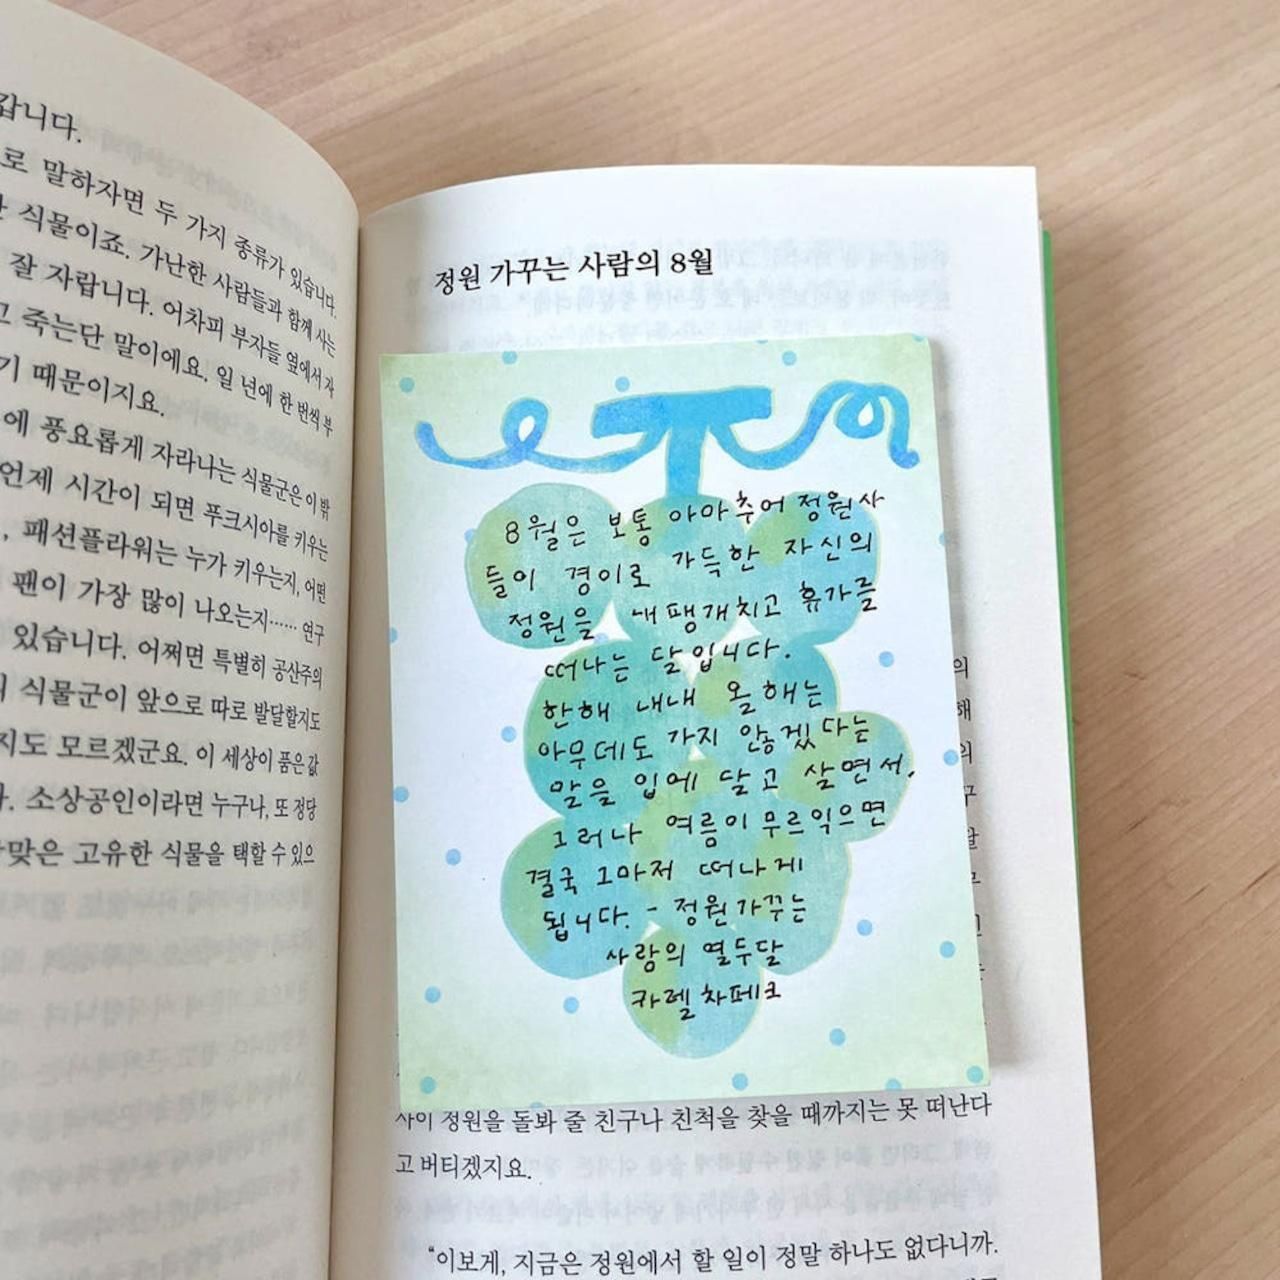 갑니다.
로 말하자면 두 가지 종류가 있습니다.
식물이죠. 가난한 사람들과 함께 사는
잘 자랍니다. 어차피 부자들 옆에서 자
고 죽는단 말이에요. 일 년에 한 번씩 부
기 때문이지요.
에 풍요롭게 자라나는 식물군은 이 밖
언제 시간이 되면 푸크시아를 키우는
패션플라워는 누가 키우는지, 어떤
팬이 가장 많이 나오는지…… 연구
있습니다. 어쩌면 특별히 공산주의
식물군이 앞으로 따로 발달할지도
지도 모르겠군요. 이 세상이 품은 값
소상공인이라면 누구나, 또 정당
맞은 고유한 식물을 택할 수 있으
정원 가꾸는 사람의 8월
8월은 보통 아마추어 정원사
들이 경이로 가득한 자신의
정원을 내팽개치고 휴가를
떠나는 달입니다.
한해 내내 올해는
아무데도 가지 않겠다는
말을 입에 달고 살면서,
그러나 여름이 무르익으면
결국 그마저 떠나게
됩니다. - 정원가꾸는
사람의 열두달
카렐 차페크
사이 정원을 돌봐 줄 친구나 친척을 찾을 때까지는 못 떠난다
고 버티겠지요.
“이보게, 지금은 정원에서 할 일이 정말 하나도 없다니까.